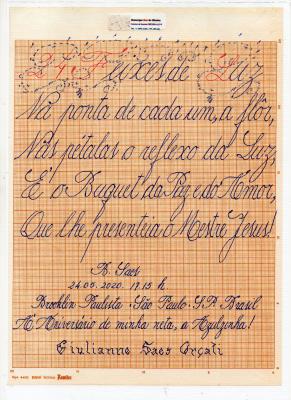 24 Fáxes de Luz
Na ponta de cada um, a flôr,
Nas pétalas o reflexo da Luz,
É o Buquet da Paz e do Amor,
Que lhe presenteia o Mestre Jesus!
B. Saes
24.05.2020. 17.15 h
Brooklin Paulista - São Paulo - S.P. Brasil
Aº Aniversário de minha neta, a Azulzinha!
Giulianna Saes Orçati